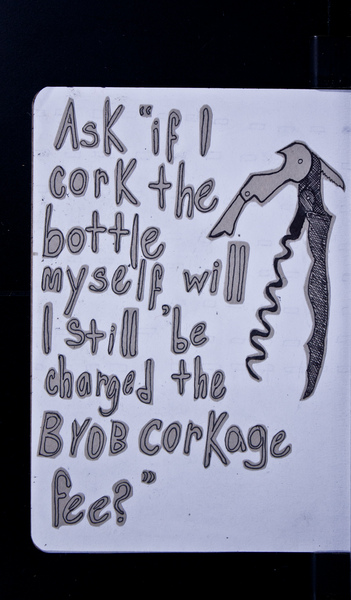 Ask "if I
cork the
bottle
myself will
I still 'be
charged the
BYOB corkage
fee?"